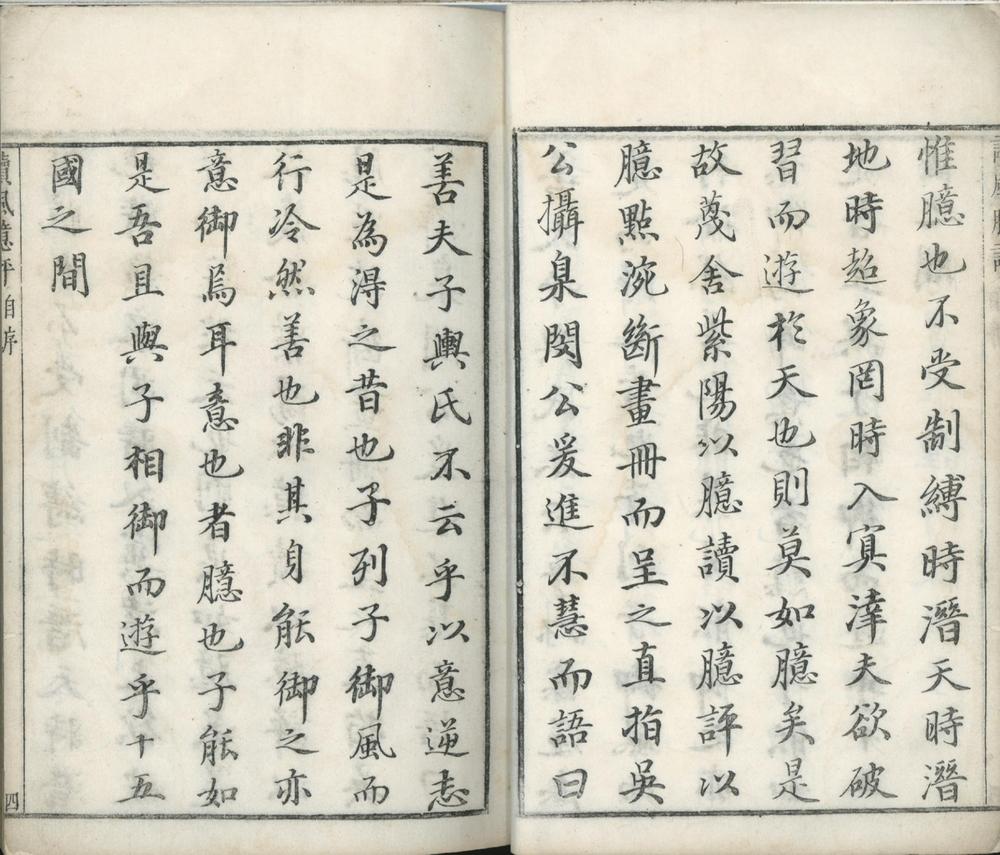 惟臆也不受制縛時潛天時潛
地時超象罔時入㝠涬夫欲破
習而遊於天也則莫如臆矣是
故蔑舍紫陽以臆讀以臆評以
臆點涴斷畫冊而呈之直指吳
公攝臬閔公爰進不慧而語曰
善夫子輿氏不云乎以意逆志
是為得之昔也子列子御風而
行冷然善也非其身能御之亦
意御焉耳意也者臆也子能如
是吾且與子相御而遊乎十五
國之間
讀風臆評自序
四